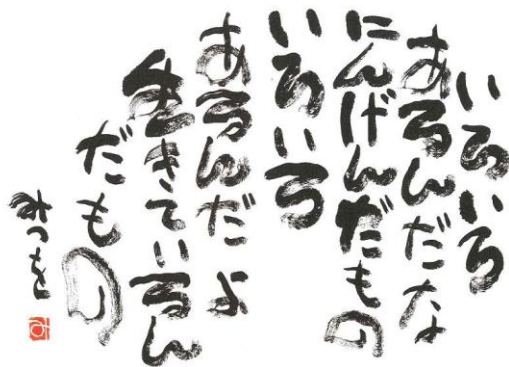 いろいろ
あるんだな
にんげんだもの
いろいろ
あるんだよ
生きているん
だもの
みつを
み